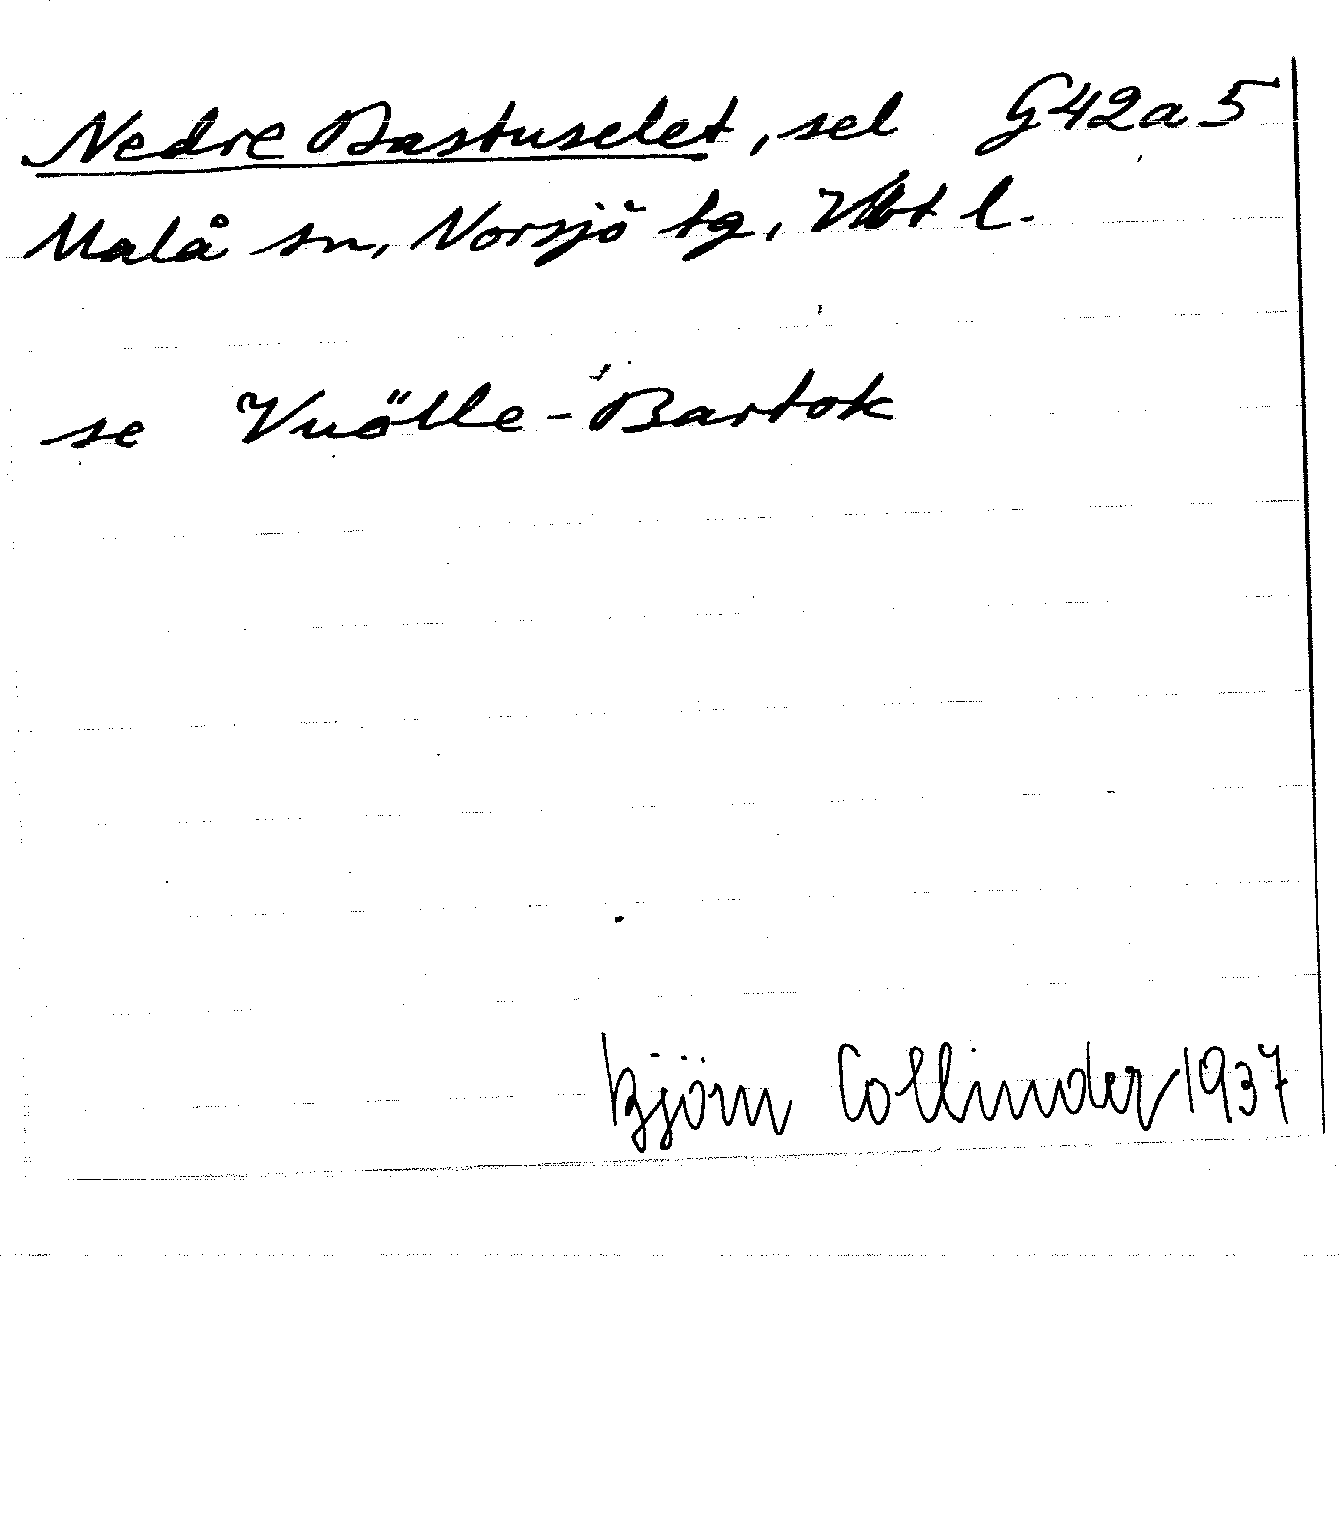 Nedre Bastuselet, sel G42a5
Malå sn, Norsjö tg, Vbt l.
se Vuölle-Bartok
Björn Collinder 1937